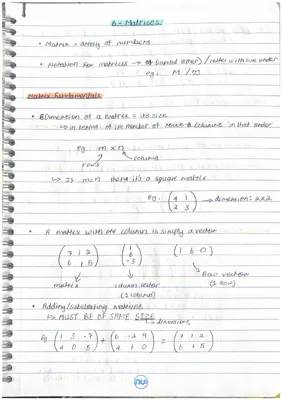 6 - Matrices
• Matrix = array of numbers
• Notation for matrices → (bolded letter) / letter with line under
eg. M / M
Matrix Fundamentals
• Dimension of a matrix = its size
→ in terms of its number of rows & columns in that order
eg m x n
rows column
↳ If m=n then it's a square matrix
eg. (4 1 → dimension: 2x2
2 3)
• A matrix with one column is simply a vector
(7 1 2 (1 (1 6 0)
6 1 5) 6
-3)
matrix column vector Row vector
(1 column) (1 row)
• Adding/subtracting matrices
↳ MUST BE OF SAME SIZE
↳ dimensions
Eg (1 3 -7 + (6 -2 9 = (7 1 2
4 0 5) 2 1 0) 6 1 5)
nu